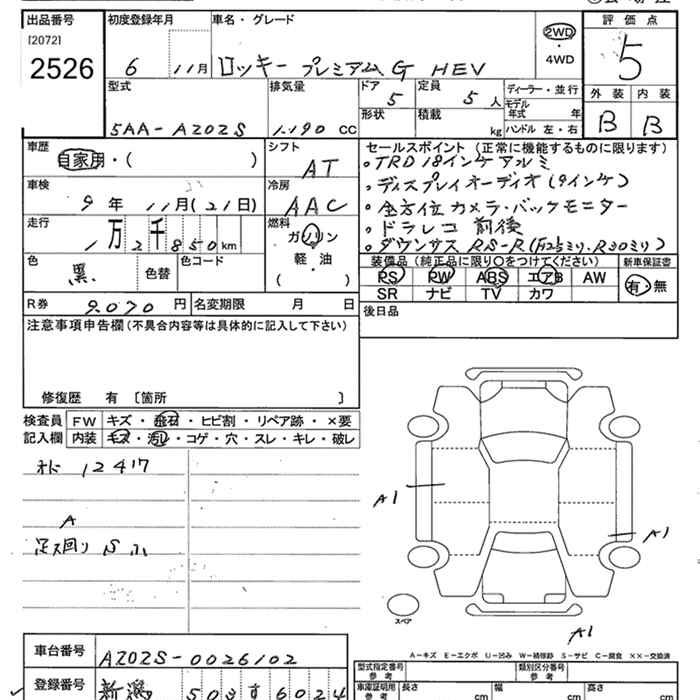 出品番号 初度登録年月 車名・グレード 評価点
[2072]
2526
6 11月 ロッキー プレミアム G HEV
2WD
・
4WD
5
型式 排気量 ドア 定員 ディーラー・並行 外装 内装
5AA-A202S 1.190 CC 5 5人
形状 積載 kg
モデル年式 年
ハンドル 左・右
B B
車歴 シフト セールスポイント (正常に機能するものに限ります)
自家用・( ) AT
・TRD 18インチアルミ
車検 冷房
9年 11月(21日) AAC
・ディスプレイオーディオ(9インチ)
・全方位カメラ・バックモニター
走行 燃料
1万2千850km ガソリン
・ドラレコ 前後
・ダウンサス RS-R(F25ミリ・R30ミリ)
色 色替 色コード 軽・油
黒 ( )
装備品 (純正品に限り○をつけてください) 新車保証書
PS PW ABS エアB AW 有・無
SR ナビ TV カワ
R券 9070円 名変期限 月 日
後日品
注意事項申告欄(不具合内容等は具体的に記入して下さい)
修復歴 有 〔箇所 〕
検査員 FW キズ・飛石・ヒビ割・リペア跡・×要
記入欄 内装 キズ・汚レ・コゲ・穴・スレ・キレ・破レ
オド 12417
A
足ス回り Sふ
A1
A1
スペア
A1
A-キズ E-エクボ U-凹み W-補修跡 S-サビ C-腐食 XX-交換済
車台番号 A202S-0026102
登録番号 新潟 503 す 6024
型式指定番号 参考 類別区分番号 参考
車庫証明用 参考 長さ cm 幅 cm 高さ cm